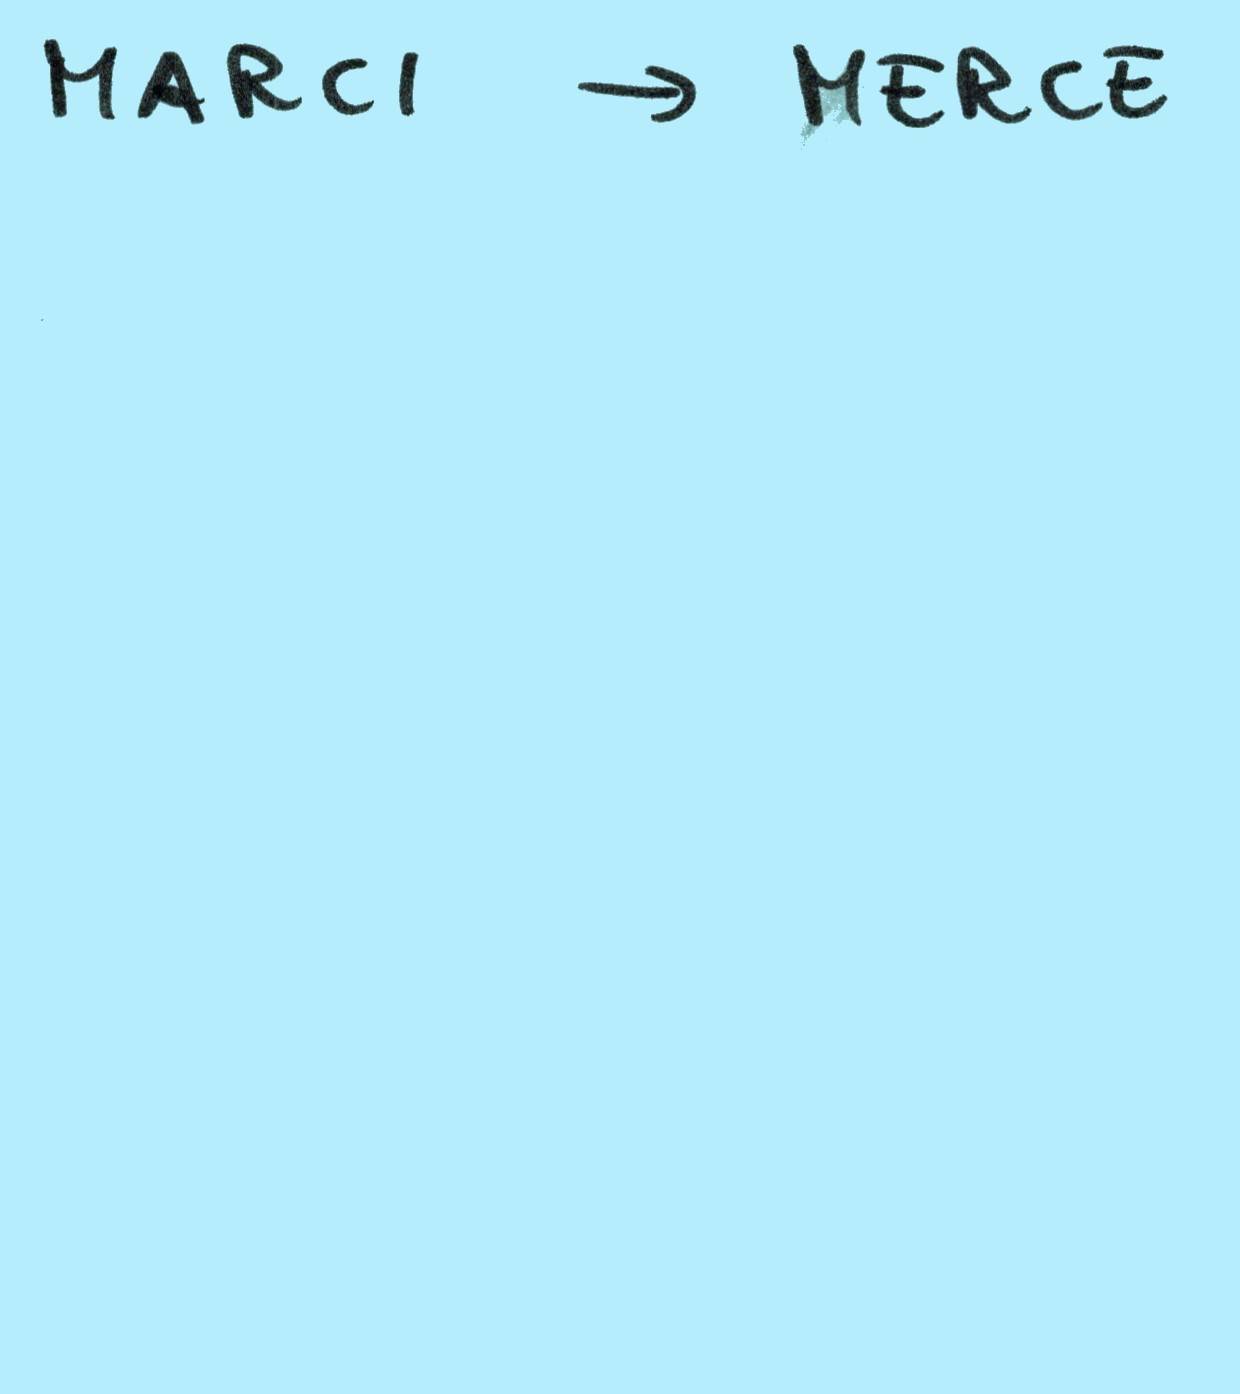 MARCI → MERCE